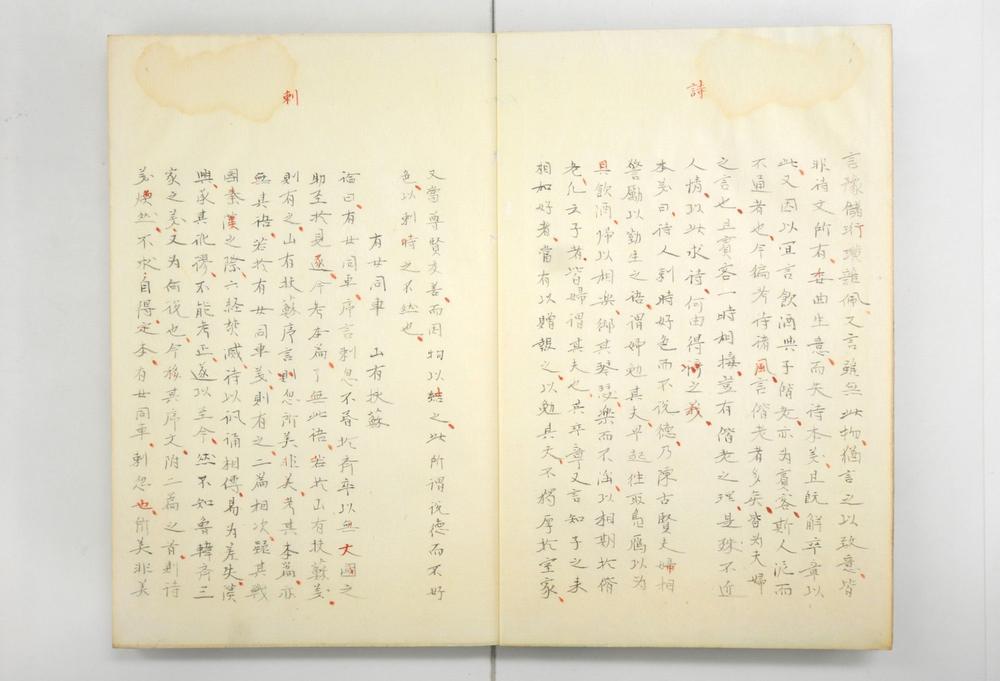 詩
言豫儲珩璜雜佩又言雖無此物猶言之以致意皆
非詩文所有委曲生意而失詩本義且既解卒章以
此又因以宜言飲酒與子偕老亦為賓客斯人泥而
不通者也今徧考詩諸風言偕老者多矣皆為夫婦
之言也且賓客一時相接豈有偕老之理是殊不近
人情以此求詩何由得詩之義
本義曰詩人刺時好色而不說德乃陳古賢夫婦相
警勵以勤生之語謂婦勉其夫早起往取鳧鴈以為
具飲酒歸以相樂御其琴瑟樂而不淫以相期於偕
老凡云子者皆婦謂其夫也其卒章又言知子之来
相如好者當有以贈報之以勉其夫不獨厚於室家
刺
又當尊賢友善而因物以結之此所謂說德而不好
色以刺時之不然也
有女同車 山有扶蘇
論曰有女同車序言刺忽不昏於齊卒以無大國之
助至於見逐今考本篇了無此語若於山有扶蘇義
則有之山有扶蘇序言刺忽所美非美考其本篇亦
無其語若於有女同車義則有之二篇相次疑其戰
國秦漢之際六経焚滅詩以諷誦相傳易為差失漢
興承其訛謬不能考正遂以至今然不如魯韓齊三
家之義又為何說也今移其序文附二篇之首則詩
義煥然不求自得定本有女同車刺忽也所美非美